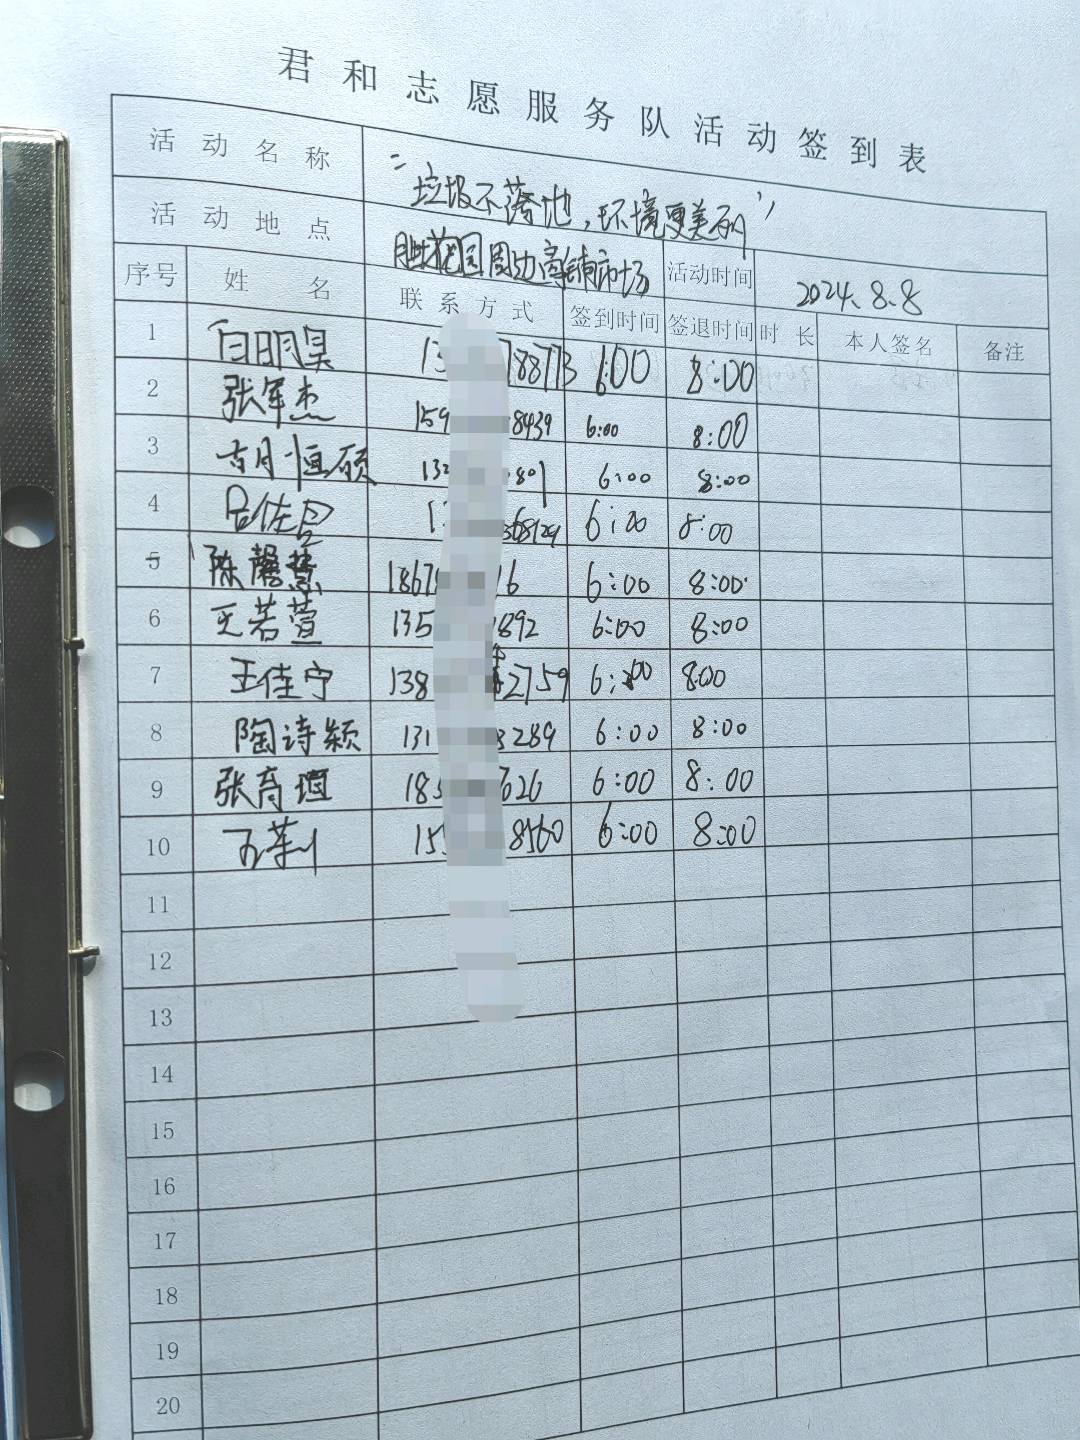 君和志愿服务队活动签到表
活动名称 “垃圾不落地，环境更美丽”
活动地点 花园周边商铺市场 活动时间 2024.8.8
序号 姓名 联系方式 签到时间 签退时间 时长 本人签名 备注
1 白明昊 13 788773 6:00 8:00
2 张军杰 159 8439 6:00 8:00
3 胡恒硕 132 801 6:00 8:00
4 吕佳 1 368129 6:00 8:00
5 陈馨慧 1867 16 6:00 8:00
6 王若萱 135 1892 6:00 8:00
7 王佳宁 138 2759 6:00 8:00
8 陶诗颖 131 3289 6:00 8:00
9 张育瑄 185 626 6:00 8:00
10 15 8560 6:00 8:00
11
12
13
14
15
16
17
18
19
20